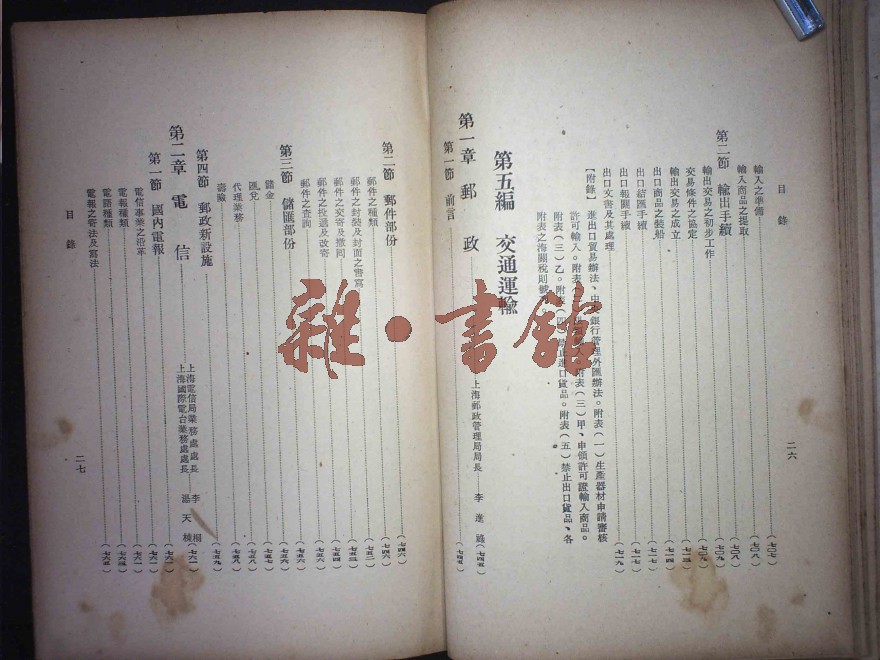 目錄
輸入之準備（七〇七）
輸入商品之提取（七〇八）
第二節 輸出手續（七〇八）
輸出交易之初步工作（七〇九）
交易條件之協定
輸出交易之成立
出口商品之裝船（七一四）
出口結匯手續（七一七）
出口報關手續（七一八）
出口文書及其處理（七一九）
【附錄】 進出口貿易辦法、中央銀行管理外匯辦法。附表（一）生產器材申請審核
許可輸入。附表（三）甲、申領許可證輸入商品。
附表（三）乙。附表（四）禁止進口貨品。附表（五）禁止出口貨品、各
附表之海關稅則號
第五編 交通運輸
第一章 郵政 上海郵政管理局局長 李進祿（七四五）
第一節 前言
二六
第二節 郵件部份（七四六）
郵件之種類（七四六）
郵件之封裝及封面之書寫（七五二）
郵件之交寄及撤回（七五三）
郵件之投遞及改寄（七五四）
郵件之查詢（七五六）
第三節 儲匯部份（七五六）
儲金（七五六）
匯兌（七五七）
代理業務（七五八）
壽險（七五八）
第四節 郵政新設施（七五九）
第二章 電信 上海電信局業務處處長 李桐
上海國際電台業務處處長 溫天棱（七六一）
第一節 國內電報（七六一）
電信事業之沿革（七六一）
電報種類（七六三）
電語種類（七六三）
電報之寄法及寫法（七六五）
目錄
二七
雜·書館